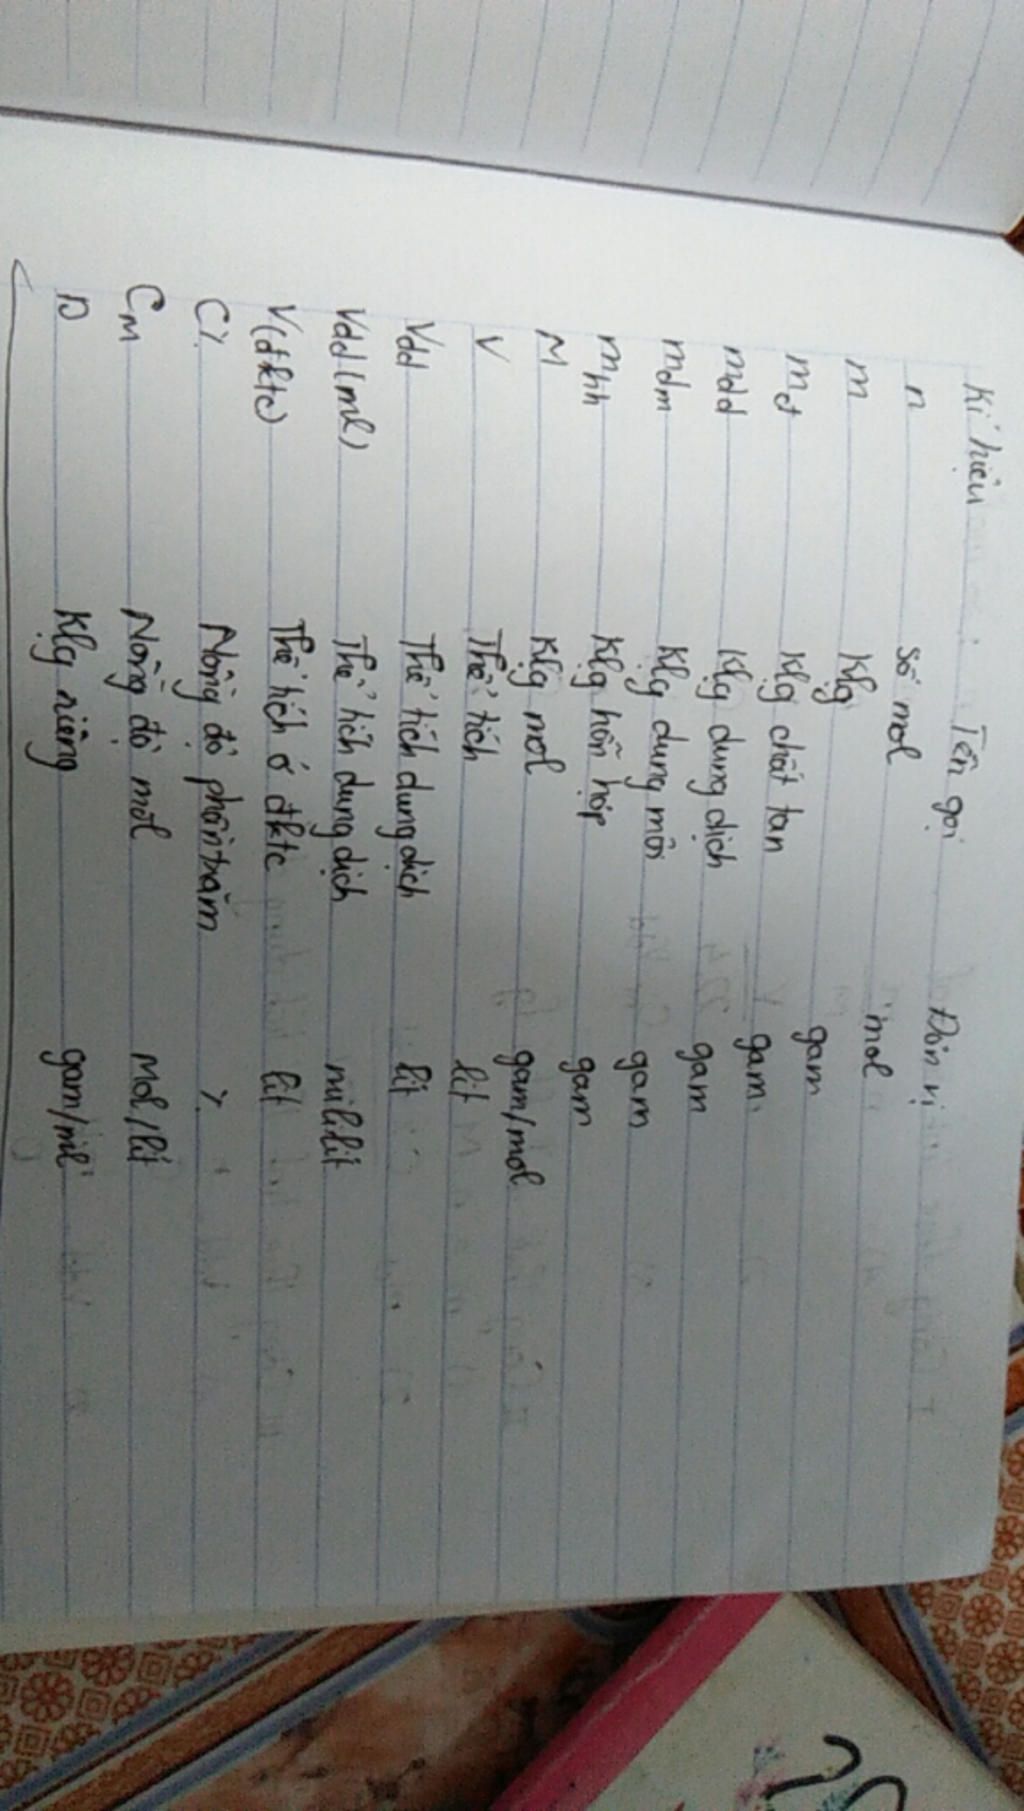 Kí hiệu Tên gọi Đơn vị
n số mol mol
m Klg gam
mct Klg chất tan gam
mdd Klg dung dịch gam
mdm Klg dung môi gam
mhh Klg hỗn hợp gam
M Klg mol gam/mol
V Thể tích lít
Vdd Thể tích dung dịch lít
Vdd (ml) Thể tích dung dịch mililít
V(đktc) Thể tích ở đktc lít
C% Nồng độ phần trăm %
CM Nồng độ mol Mol/lít
D Klg riêng gam/ml